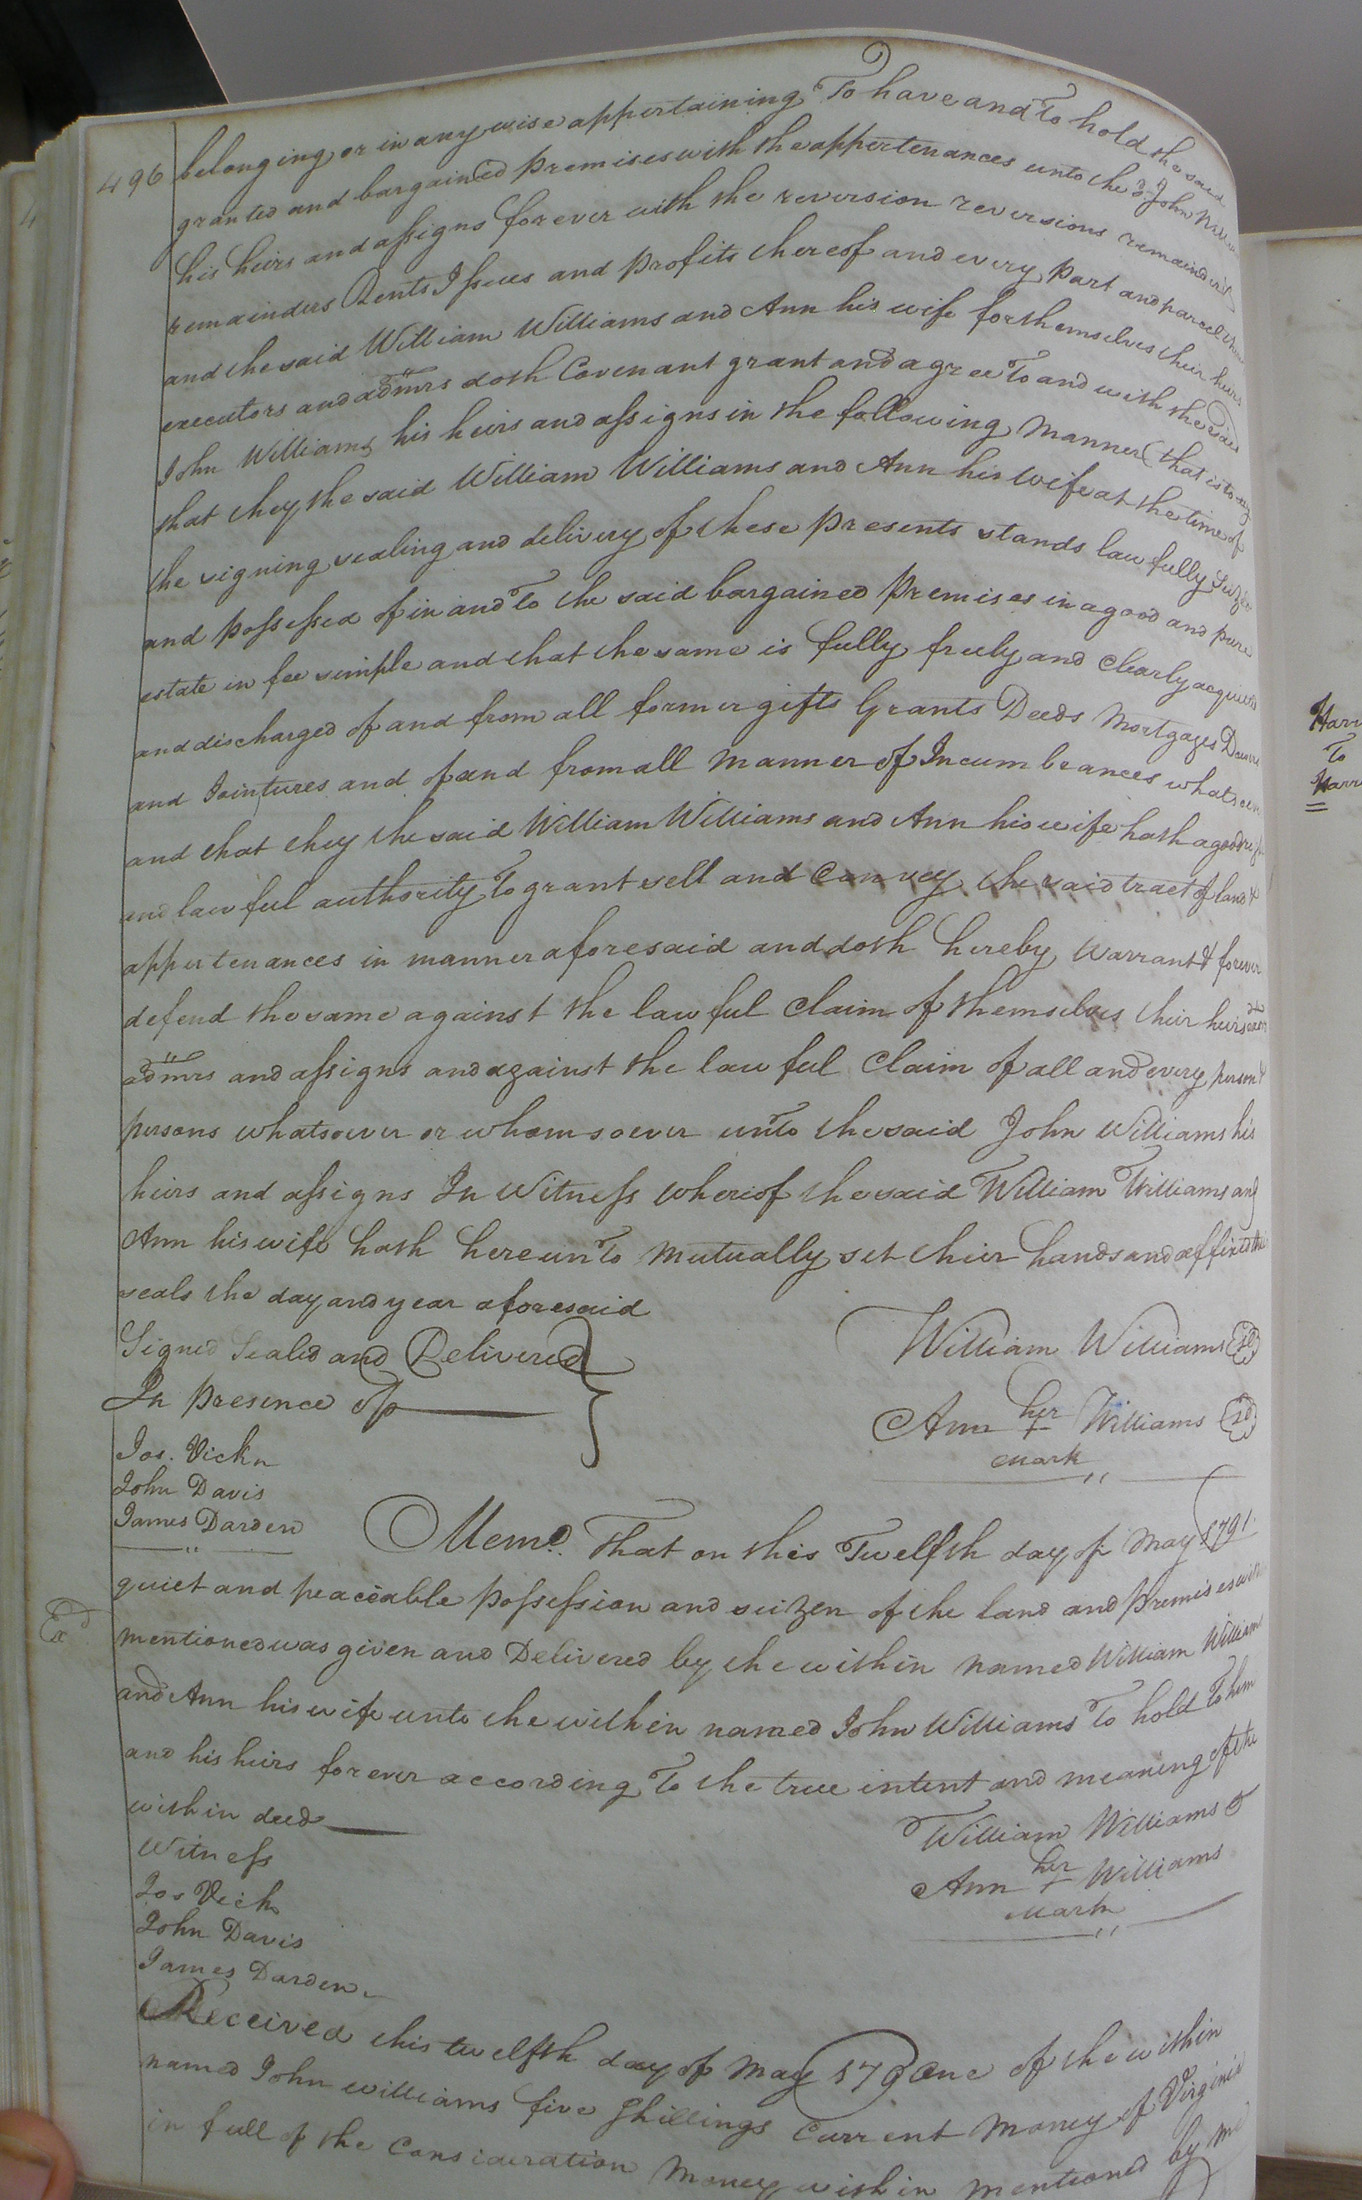 496
belonging or in any wise appertaining To have and To hold the said
granted and bargained premises with the appertenances unto the sd. John Williams
his heirs and assigns forever with the reversion reversions remainder
remainders Rents Issues and profits thereof and every part and parcel thereof
and the said William Williams and Ann his wife for themselves their heirs
executors and admrs doth Covenant grant and agree To and with the said
John Williams his heirs and assigns in the following manner (that is to say
that they the said William Williams and Ann his wife at the time of
the signing sealing and delivery of these presents stands lawfully Seized
and possessed of in and To the said bargained premises in a good and pure
estate in fee simple and that the same is fully freely and clearly acquired
and discharged of and from all former gifts Grants Deeds Mortgages Dowers
and Jointures and of and from all manner of Incumbeances whatsoever
and that they the said William Williams and Ann his wife hath a good right
and lawful authority To grant sell and convey the said tract of land &
appertenances in manner aforesaid and doth hereby warrant & forever
defend the same against the lawful claim of themselves their heirs exors
admrs and assigns and against the lawful Claim of all and every person &
persons whatsoever or whomsoever unto the said John Williams his
heirs and assigns In Witness whereof the said William Williams and
Ann his wife hath hereunto mutually set their hands and affixed their
seals the day and year aforesaid
Signed Sealed and Delivered
In presence of
William Williams
Ann her + Williams
mark
Jos. Vick
John Davis
James Darden
Memo. That on this Twelfth day of May 1791
quiet and peaceable possession and seizen of the land and premises within
Exd.
mentioned was given and Delivered by the within named William Williams
and Ann his wife unto the within named John Williams To hold To him
and his heirs forever according To the true intent and meaning of the
within deed
William Williams
Ann her + Williams
mark
Witness
Jos Vick
John Davis
James Darden
Received this twelfth day of May 179 one of the within
named John Williams five Shillings Current Money of Virginia
in full of the Consideration Money within mentioned by me
Harr
To
Harr